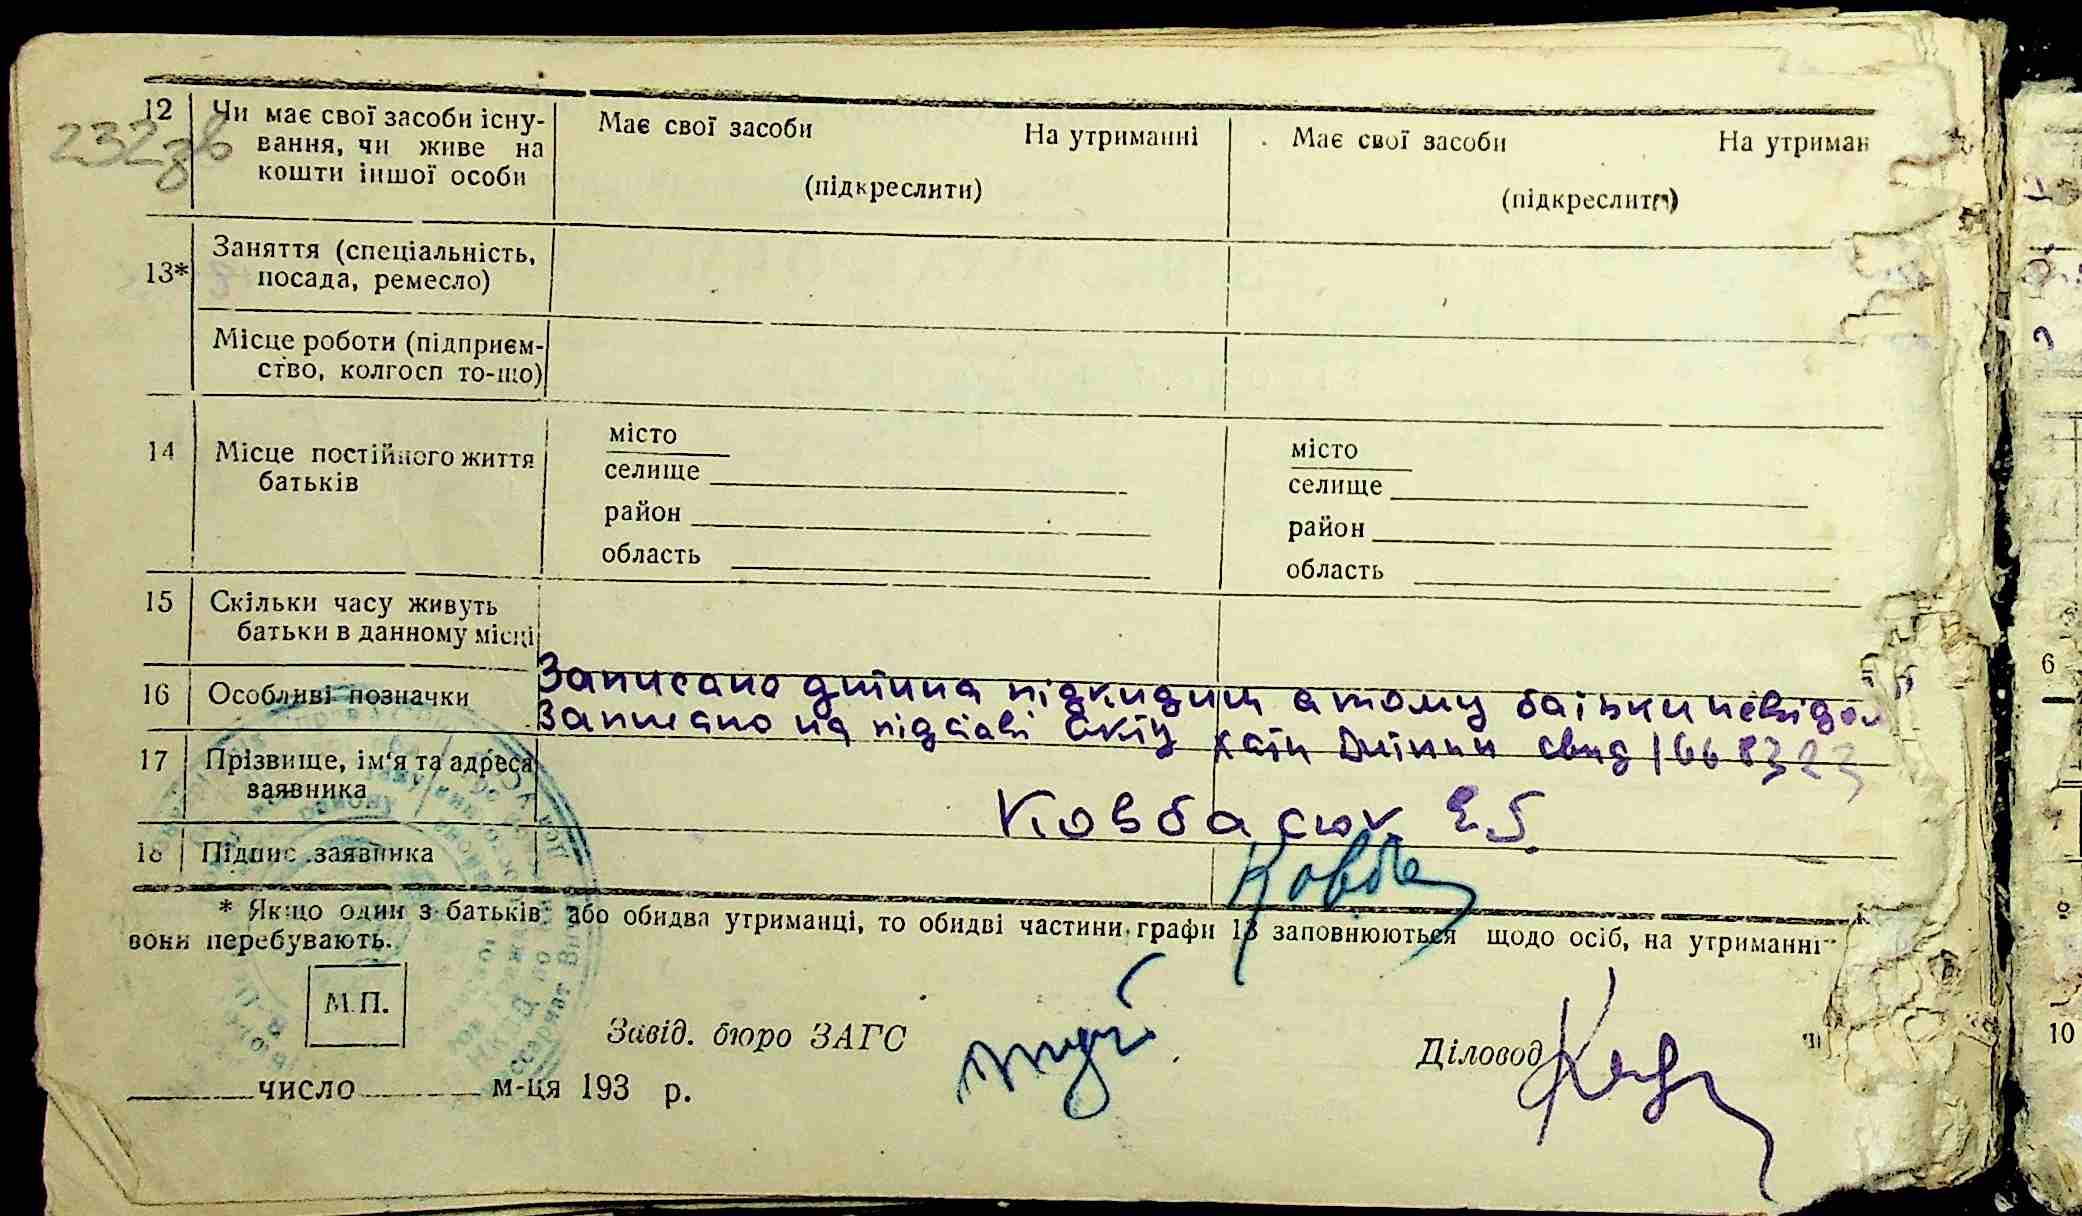 232зв
12 Чи має свої засоби існу- Має свої засоби На утриманні Має свої засоби На утриман
вання, чи живе на
кошти іншої особи (підкреслити) (підкреслити)
13* Заняття (спеціальність,
посада, ремесло)
Місце роботи (підприєм-
ство, колгосп то-що)
14 Місце постійного життя місто місто
батьків селище селище
район район
область область
15 Скільки часу живуть
батьки в данному місці
16 Особливі позначки Записано дитина підкидиш а тому батьки невідом
Записано на підставі акту свид 1668323
17 Прізвище, ім'я та адреса
заявника Ковбасюк
18 Підпис заявника Ковба
* Якщо один з батьків або обидва утриманці, то обидві частини графи 13 заповнюються щодо осіб, на утриманні
вони перебувають.
М.П.
Завід. бюро ЗАГС Діловод
число м-ця 193 р.
6
10